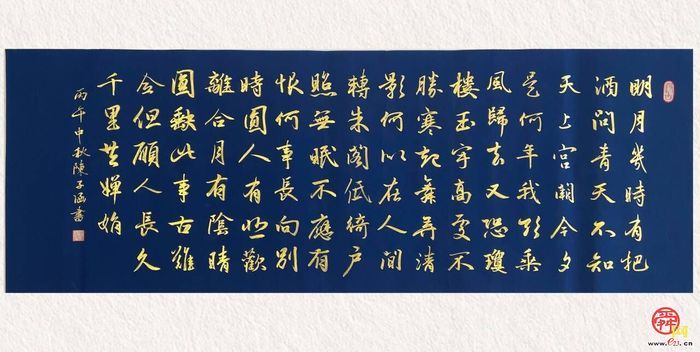 明月幾時有把
酒問青天不知
天上宮闕今夕
是何年我欲乘
風歸去又恐瓊
樓玉宇高處不
勝寒起舞弄清
影何似在人間
轉朱閣低綺戶
照無眠不應有
恨何事長向別
時圓人有悲歡
離合月有陰晴
圓缺此事古難
全但願人長久
千里共嬋娟
丙午中秋陳子涵書
舜网
www.e23.cn